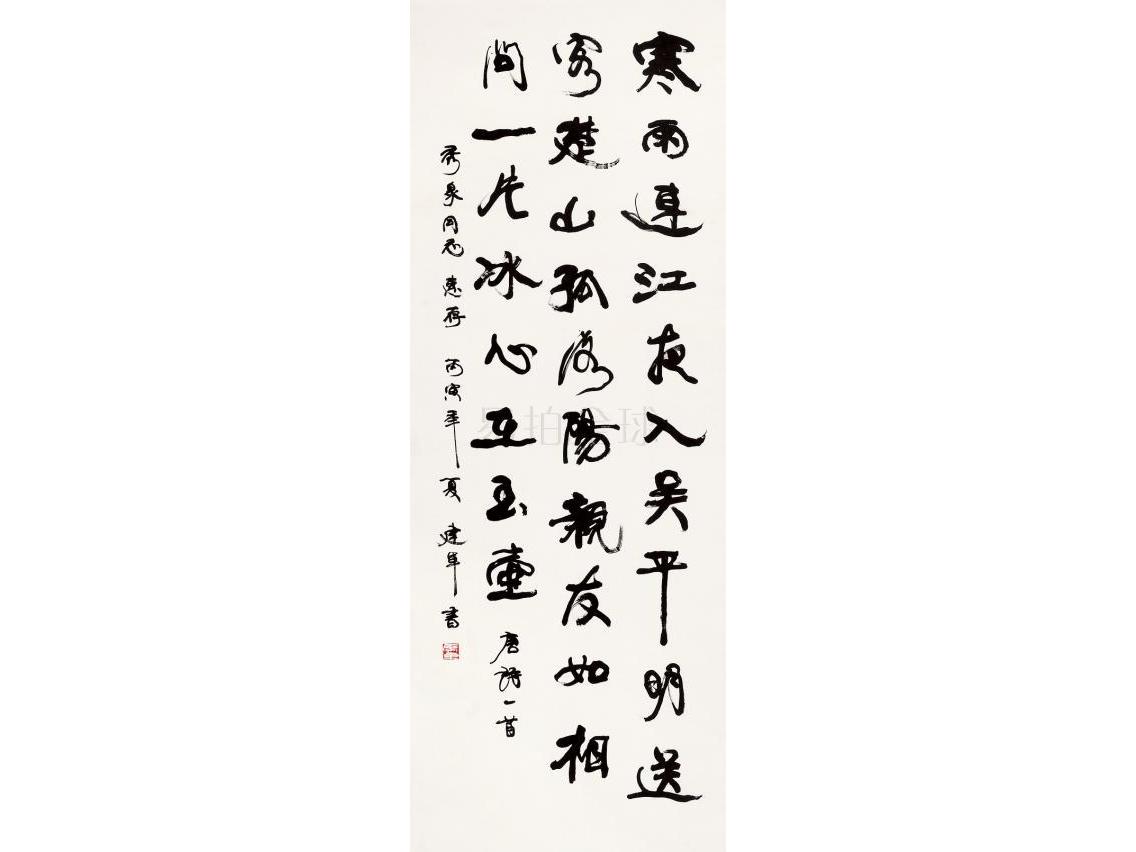 寒雨連江夜入吴平明送
客楚山孤洛陽親友如相
問一片冰心在玉壺 唐詩一首
秀泉同志惠存 丙寅年夏 建阜书
易拍全球